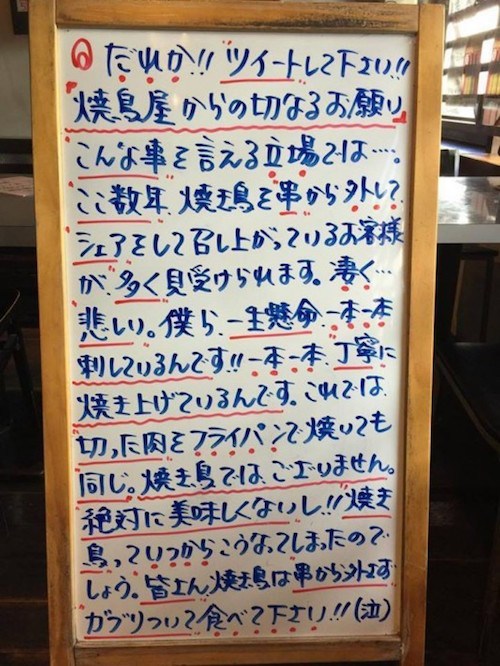 だれか!!ツイートして下さい!!
焼鳥屋からの切なるお願い
こんな事を言える立場では…。
ここ数年、焼き鳥を串から外して、
シェアをして召し上がっているお客様
が、多く見受けられます。凄く…
悲しい。僕ら、一生懸命一本一本
刺しているんです!!一本一本、丁寧に
焼き上げているんです。これでは、
切った肉をフライパンで焼いても
同じ。焼き鳥ではございません。
絶対に美味しくないし!!焼き
鳥っていつからこうなってしまったので
しょう。皆さん、焼き鳥は串から外さず
ガブりついて食べて下さい!!(泣)